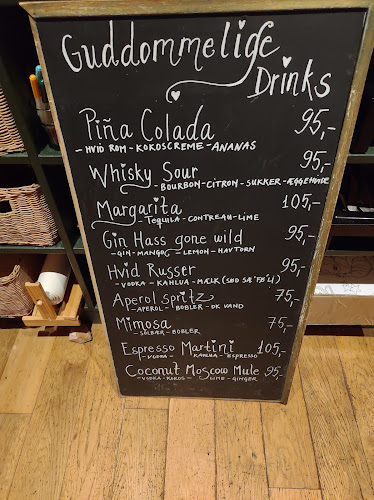 Guddommelige
Drinks
Piña Colada 95,-
- HVID ROM - KOKOSCREME - ANANAS
Whisky Sour 95,-
BOURBON - CITRON - SUKKER - ÆGGEHVIDE
Margarita 105,-
TEQUILA - CONTREAU - LIME
Gin Hass gone wild 95,-
- GIN - MANGO - LEMON - HAVTORN
Hvid Russer 95,-
- VODKA - KAHLUA - MÆLK
Aperol spritz 75,-
- APEROL - BOBLER - DK VAND
Mimosa 75,-
- SOLBÆR - BOBLER
Espresso Martini 105,-
- VODKA - KAHLUA - ESPRESSO
Coconut Moscow Mule 95,-
- VODKA - KOKOS - LIME - GINGER